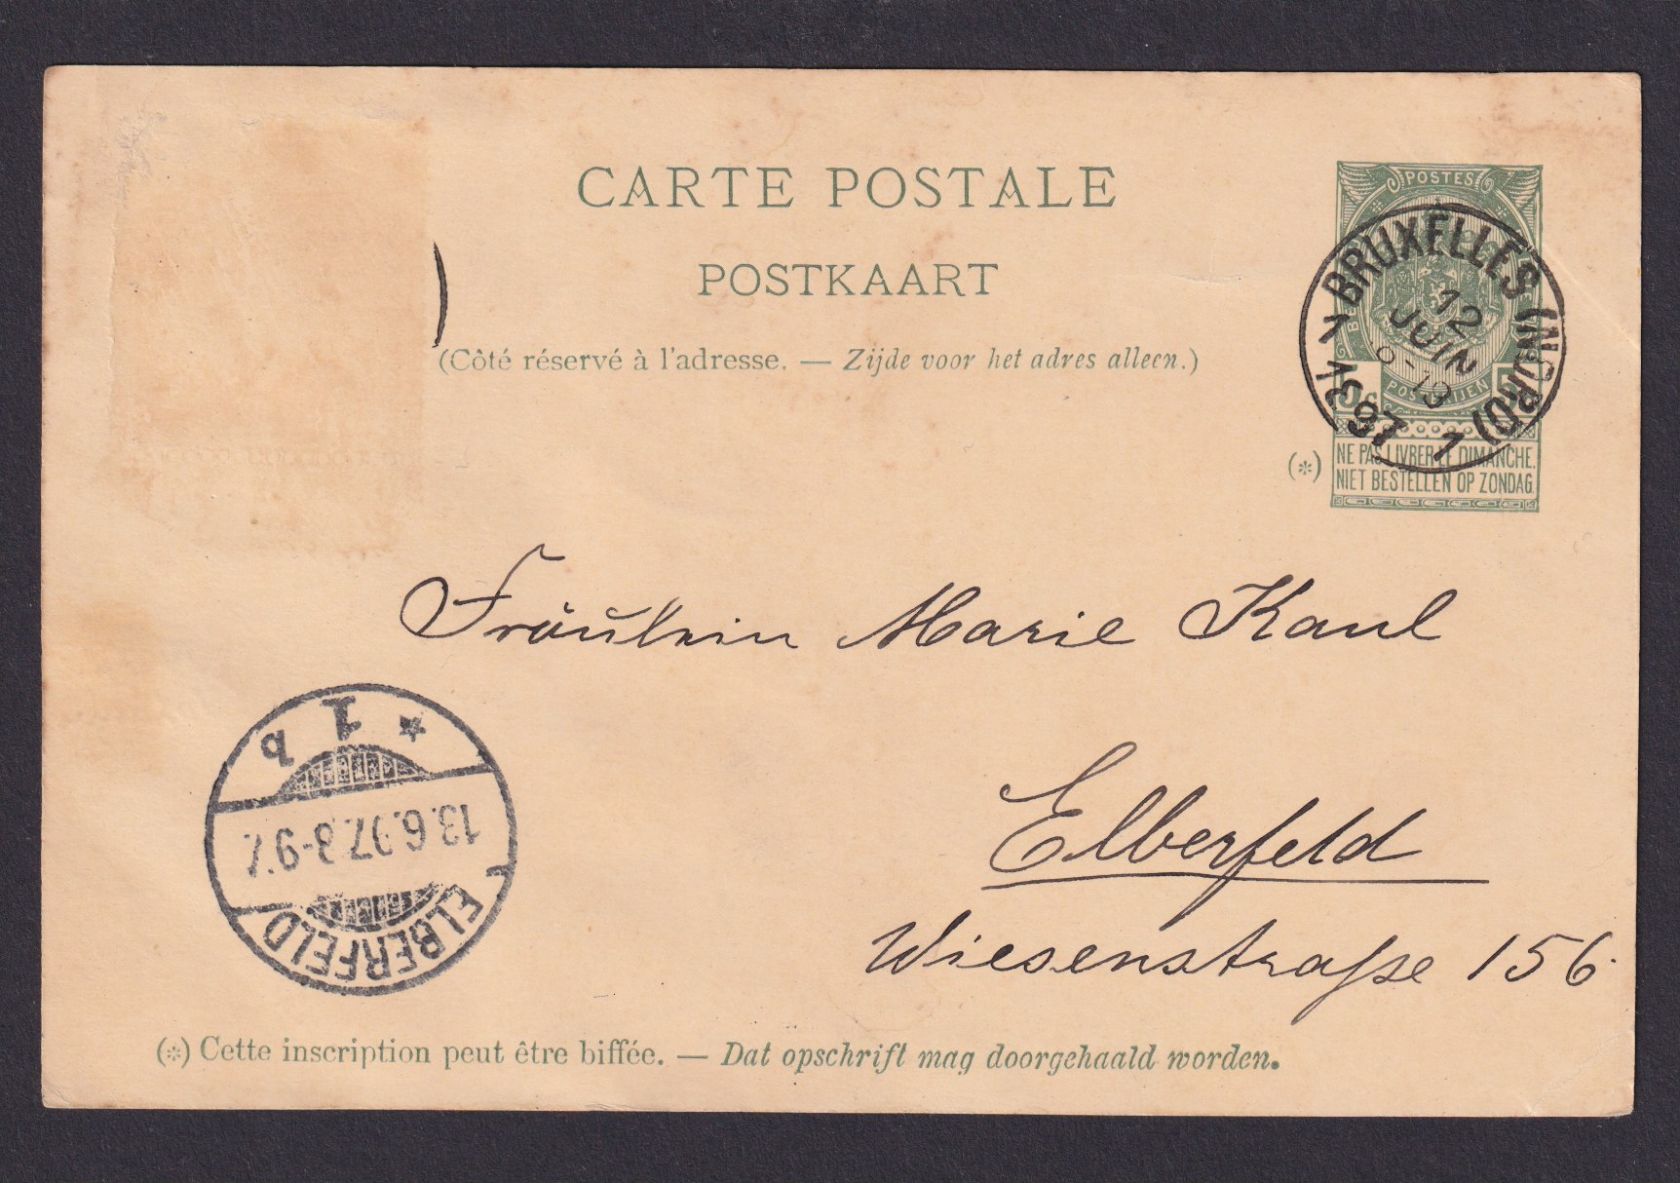 CARTE POSTALE
POSTKAART
(Côté réservé à l'adresse. — Zijde voor het adres alleen.)
POSTES
BRUXELLES (NORD) 1
12
JUIN
1897
5 c
(*)
NE PAS LIVRER LE DIMANCHE.
NIET BESTELLEN OP ZONDAG.
Fräulein Marie Kaul
Elberfeld
Wiesenstraße 156.
ELBERFELD
13.6.97. 8-9 V.
* 1 b
(*) Cette inscription peut être biffée. — Dat opschrift mag doorgehaald worden.